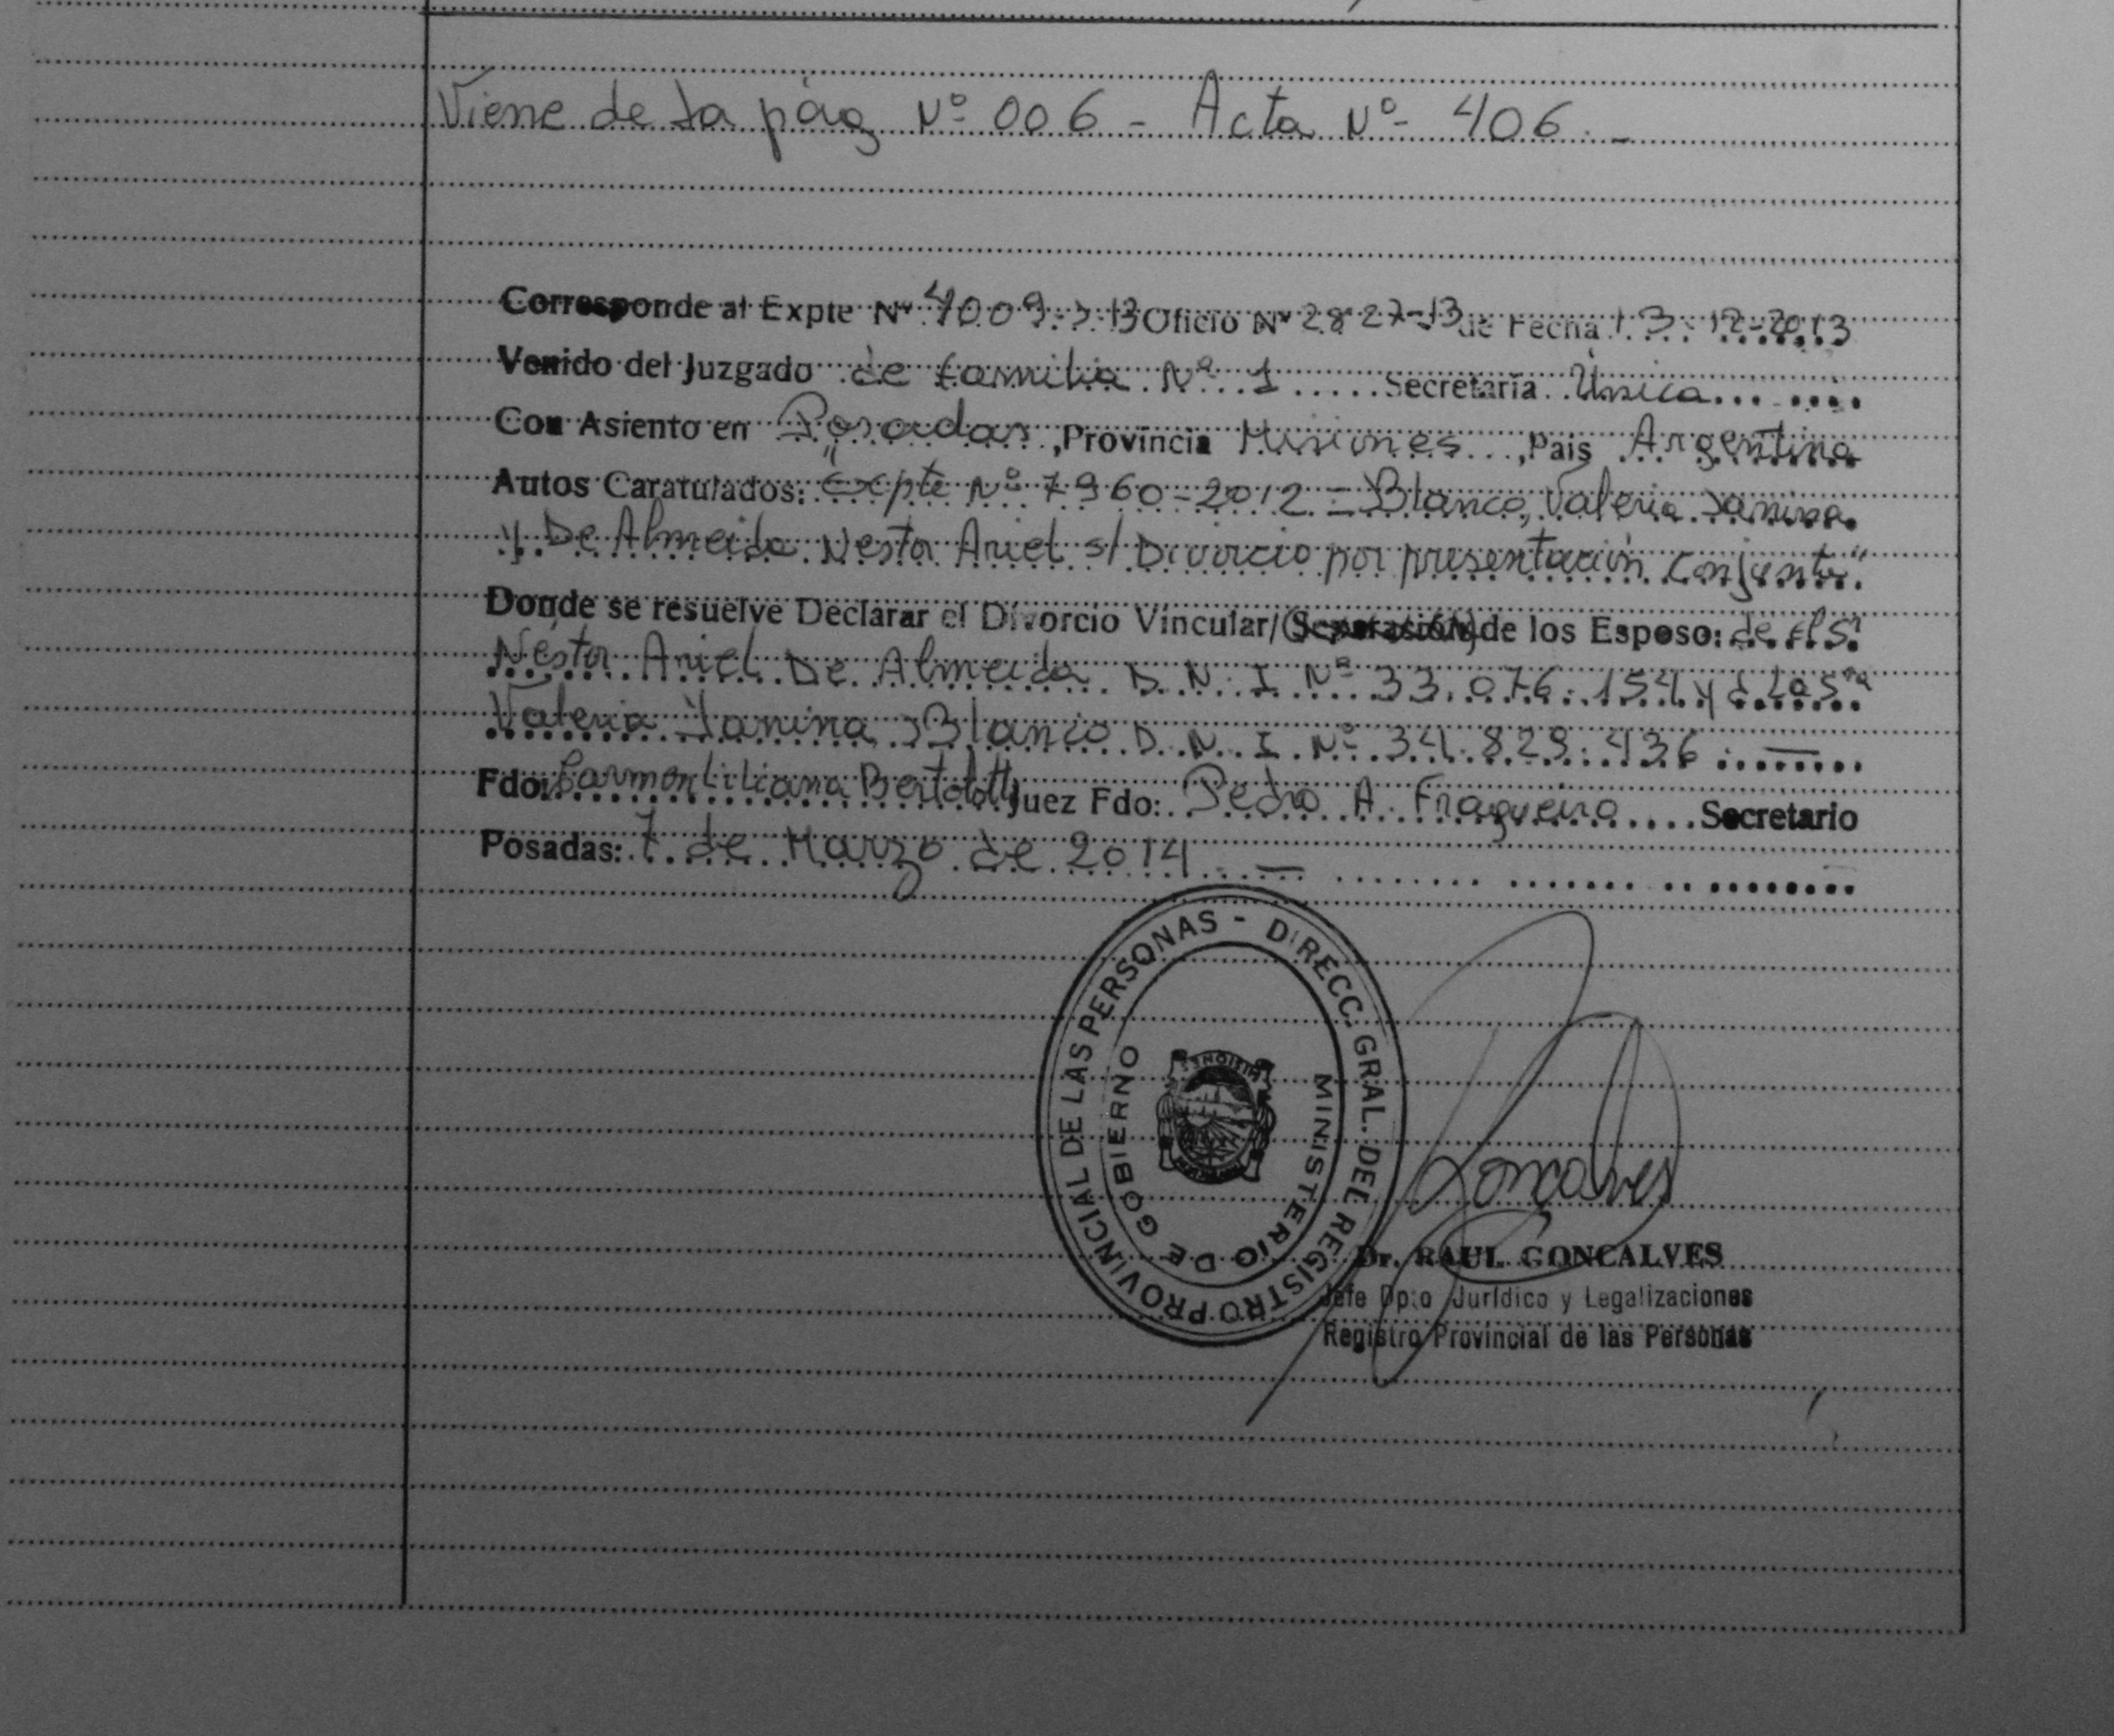 Viene de la pág Nº 006 - Acta Nº 406. -
Corresponde al Expte Nº 4009-J-13 Oficio Nº 2827-13 de Fecha 13-12-2013
Venido del Juzgado de familia Nº 1 ..... Secretaría Única
Con Asiento en Posadas, Provincia Misiones, País Argentina
Autos Caratulados: "Expte Nº 7960-2012 = Blanco, Valeria Janina
y De Almeida Nestor Ariel s/ Divorcio por presentación conjunta".
Donde se resuelve Declarar el Divorcio Vincular/(Separasión) de los Esposo: de el Sr
Néstor Ariel De Almeida D.N.I Nº 33.076.154 y d la Sra
Valeria Janina Blanco D.N.I Nº 34.829.436.—
Fdo: Carmen Liliana Bertolotti Juez Fdo: Pedro A. Fragueiro Secretario
Posadas: 7 de Marzo de 2014 —
DIRECC. GRAL. DEL REGISTRO PROVINCIAL DE LAS PERSONAS -
MINISTERIO DE GOBIERNO
MISIONES
Goncalves
Dr. RAUL GONCALVES
Jefe Dpto Jurídico y Legalizaciones
Registro Provincial de las Personas